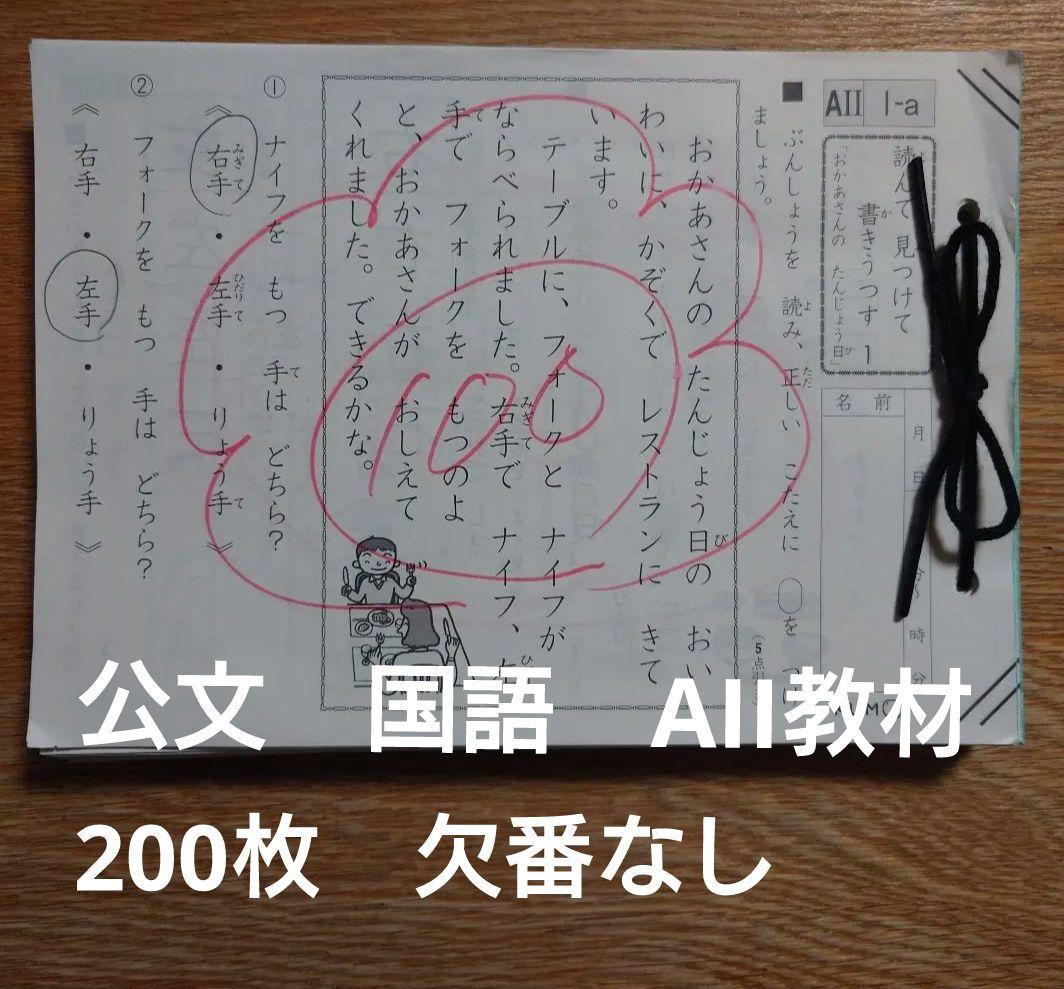 AII 1-a
読んで 見つけて
書きうつす 1
「おかあさんの たんじょう日」
月 日
名前
時 分
■ ぶんしょうを 読み、正しい こたえに ○を つけ
ましょう。
おかあさんの たんじょう日の おい
わいに、かぞくで レストランに きて
います。
テーブルに、フォークと ナイフが
ならべられました。右手で ナイフ、左
手で フォークを もつのよ
と、おかあさんが おしえて
くれました。できるかな。
① ナイフを もつ 手は どちら?
《 右手 ・ 左手 ・ りょう手 》
② フォークを もつ 手は どちら?
《 右手 ・ 左手 ・ りょう手 》
100
公文 国語 AII教材
200枚 欠番なし